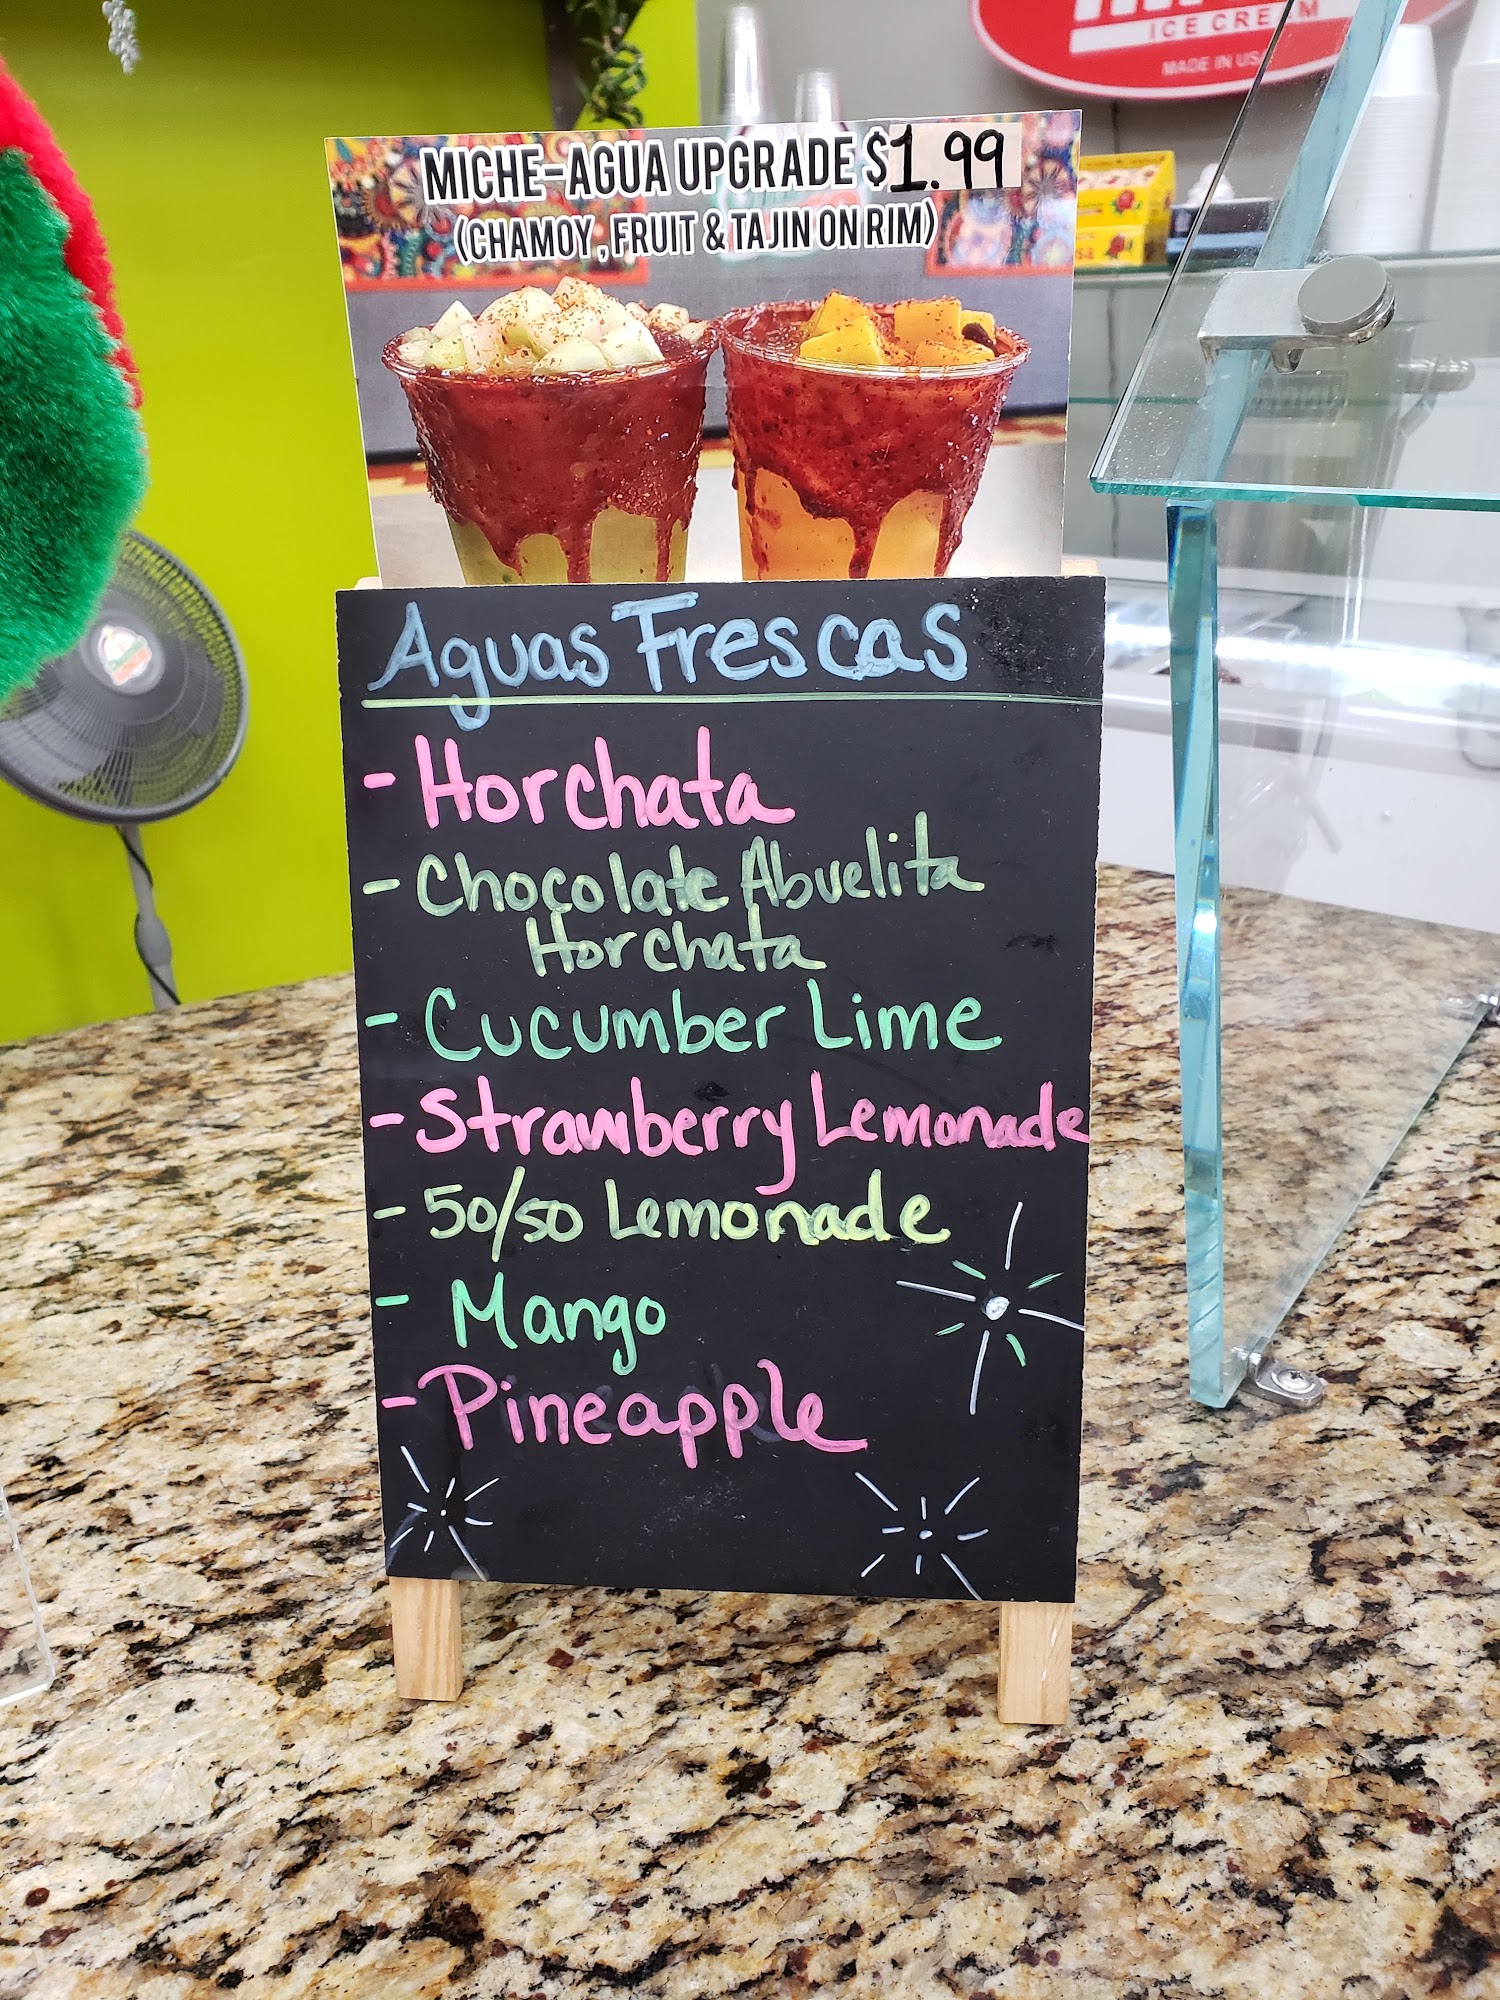 ICE CREAM
MADE IN USA
MICHE-AGUA UPGRADE $1.99
(CHAMOY, FRUIT & TAJIN ON RIM)
Aguas Frescas
- Horchata
- Chocolate Abuelita
Horchata
- Cucumber Lime
- Strawberry Lemonade
- 50/50 Lemonade
- Mango
- Pineapple